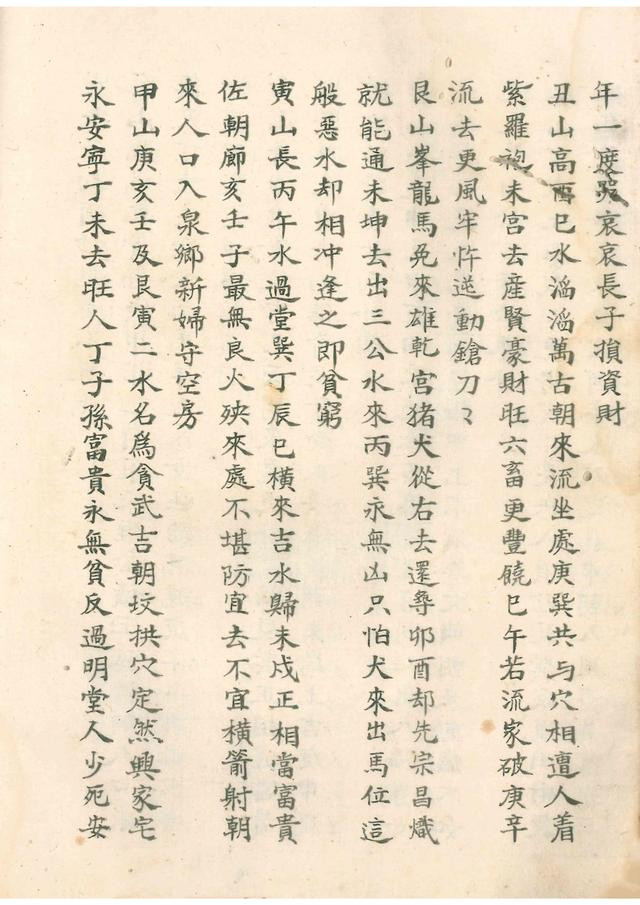 年一度哭哀哀長子損資財
丑山高酉巳水滔滔萬古朝來流坐處庚巽共与穴相遭人着
紫羅袍未宮去産賢豪財旺六畜更豐饒巳午若流家破庚辛
流去更風牢忤逆動鎗刀〻
艮山峯龍馬免來雄乾宮猪犬從右去還尋卯酉却先宗昌熾
就能通未坤去出三公水來丙巽永無凶只怕犬來出馬位這
般惡水却相冲逢之即貧窮
寅山長丙午水過堂巽丁辰巳橫來吉水歸未戍正相當富貴
佐朝廊亥壬子最無良火殃來處不堪防宜去不宜橫箭射朝
來人口入泉鄉新婦守空房
甲山庚亥壬及艮寅二水名爲貪武吉朝坟拱穴定然興家宅
永安寧丁未去旺人丁子孫富貴永無貧反過明堂人少死安